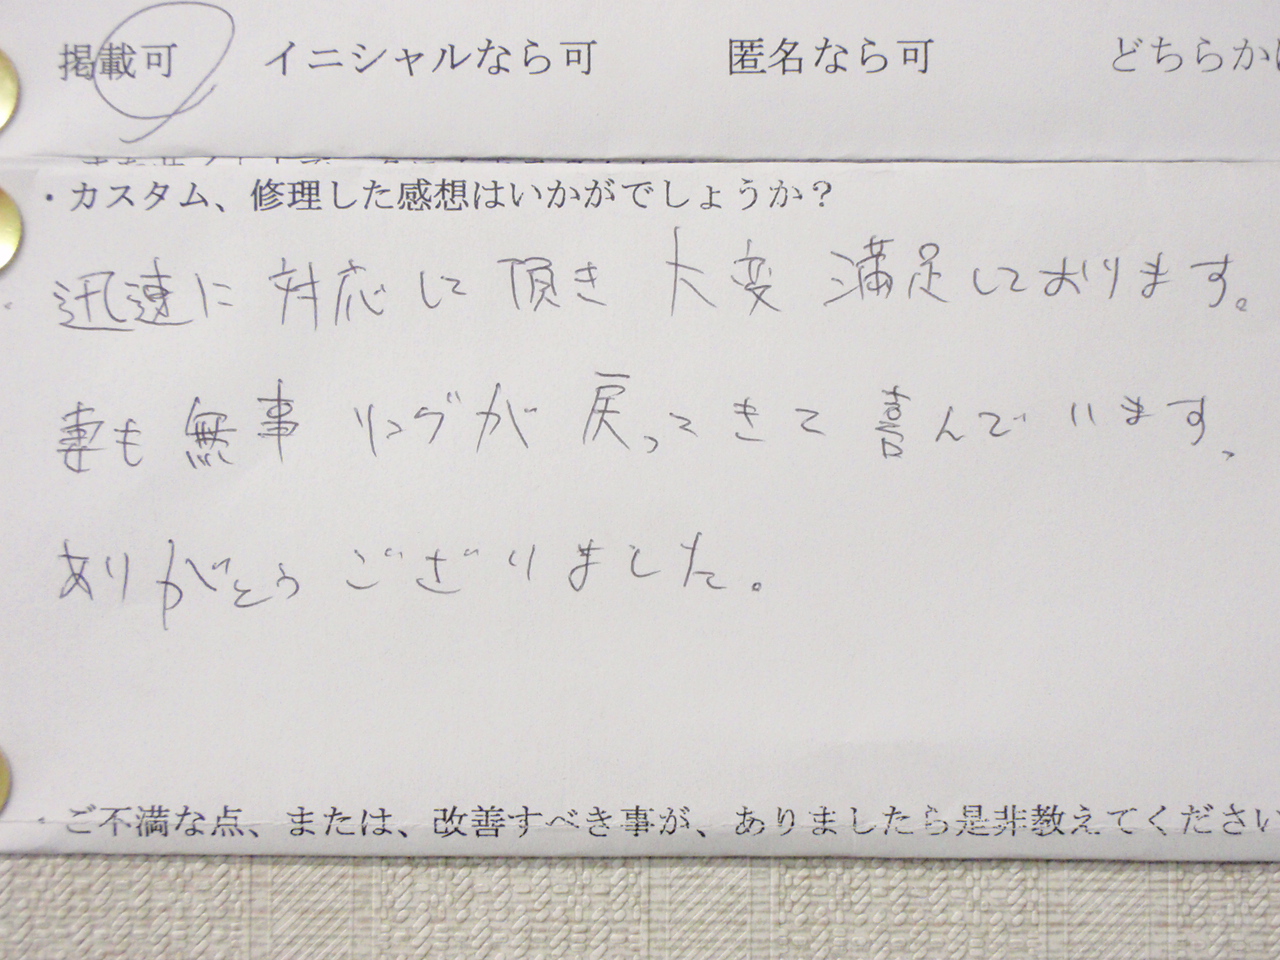 掲載可 イニシャルなら可 匿名なら可 どちらか
・カスタム、修理した感想はいかがでしょうか？
迅速に対応して頂き大変満足しております。
妻も無事リングが戻ってきて喜んでいます、
ありがとうございました。
・ご不満な点、または、改善すべき事が、ありましたら是非教えてください